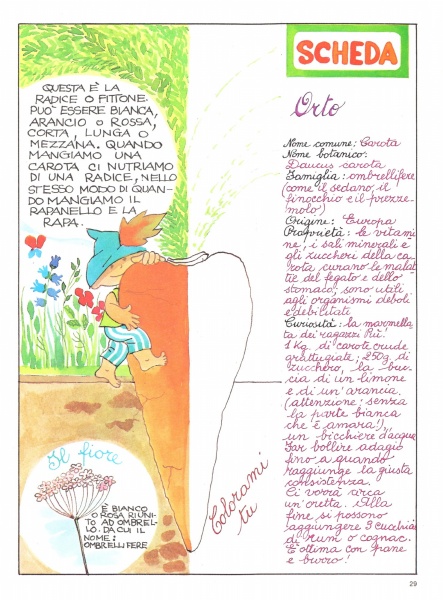 QUESTA È LA
RADICE O FITTONE.
PUO' ESSERE BIANCA,
ARANCIO O ROSSA,
CORTA, LUNGA O
MEZZANA. QUANDO
MANGIAMO UNA
CAROTA CI NUTRIAMO
DI UNA RADICE, NELLO
STESSO MODO DI QUAN-
DO MANGIAMO IL
RAPANELLO E LA
RAPA.
Il fiore
È BIANCO
O ROSA RIUNI-
TO AD OMBREL-
LO. DA CUI IL
NOME:
OMBRELLIFERE
Colorami
tu
SCHEDA
Orto
Nome comune: Carota
Nome botanico:
Daucus carota
Famiglia: ombrellifere
(come il sedano, il
finocchio e il prezze-
molo)
Origine: Europa
Proprietà: le vitami
ne, i sali minerali e
gli zuccheri della ca
rota, curano le malat
tie del fegato e dello
stomaco; sono utili
agli organismi deboli
e debilitati
Curiosità: la marmella
ta dei ragazzi Più!
1 Kg. di carote crude
grattugiate; 250g. di
zucchero, la buc
cia di un limone
e di un'arancia.
(attenzione: senza
la parte bianca
che è amara!),
un bicchiere d'acqua
Far bollire adagio
fino a quando
raggiunge la giusta
consistenza.
Ci vorrà circa
un'oretta. Alla
fine si possono
aggiungere 3 cucchiai
di rum o cognac.
È ottima con pane
e burro!
29